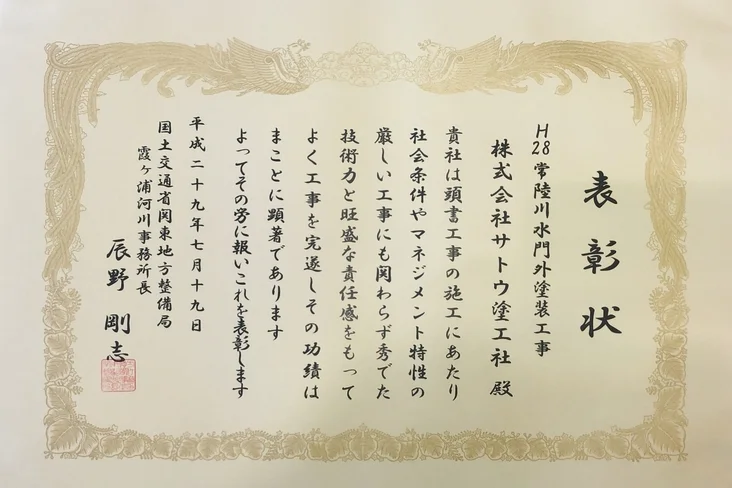 表彰状
H28常陸川水門外塗装工事
株式会社サトウ塗工社 殿
貴社は頭書工事の施工にあたり
社会条件やマネジメント特性の
厳しい工事にも関わらず秀でた
技術力と旺盛な責任感をもって
よく工事を完遂しその功績は
まことに顕著であります
よってその労に報いこれを表彰します
平成二十九年七月十九日
国土交通省関東地方整備局
霞ヶ浦河川事務所長
辰野剛志